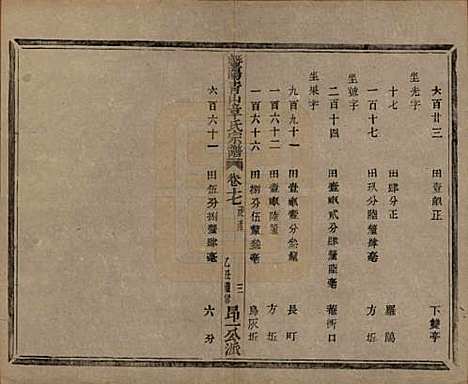 六百廿三 田壹畝正 下雙亭
坐光字
十七 田肆分正
一百十七 田玖分陸釐肆毫 方坵
坐號字
二百十四 田壹畝貳分肆釐陸毫
坐果字
九百九十一 田壹畝叁分 長町
一百六十二 田壹畝陸釐 方坵
一百六十六 田捌分伍釐叁毫 烏灰坵
青山章氏宗譜 卷十七 三 昂一公派
六百六十一 田伍分捌釐肆毫 六分